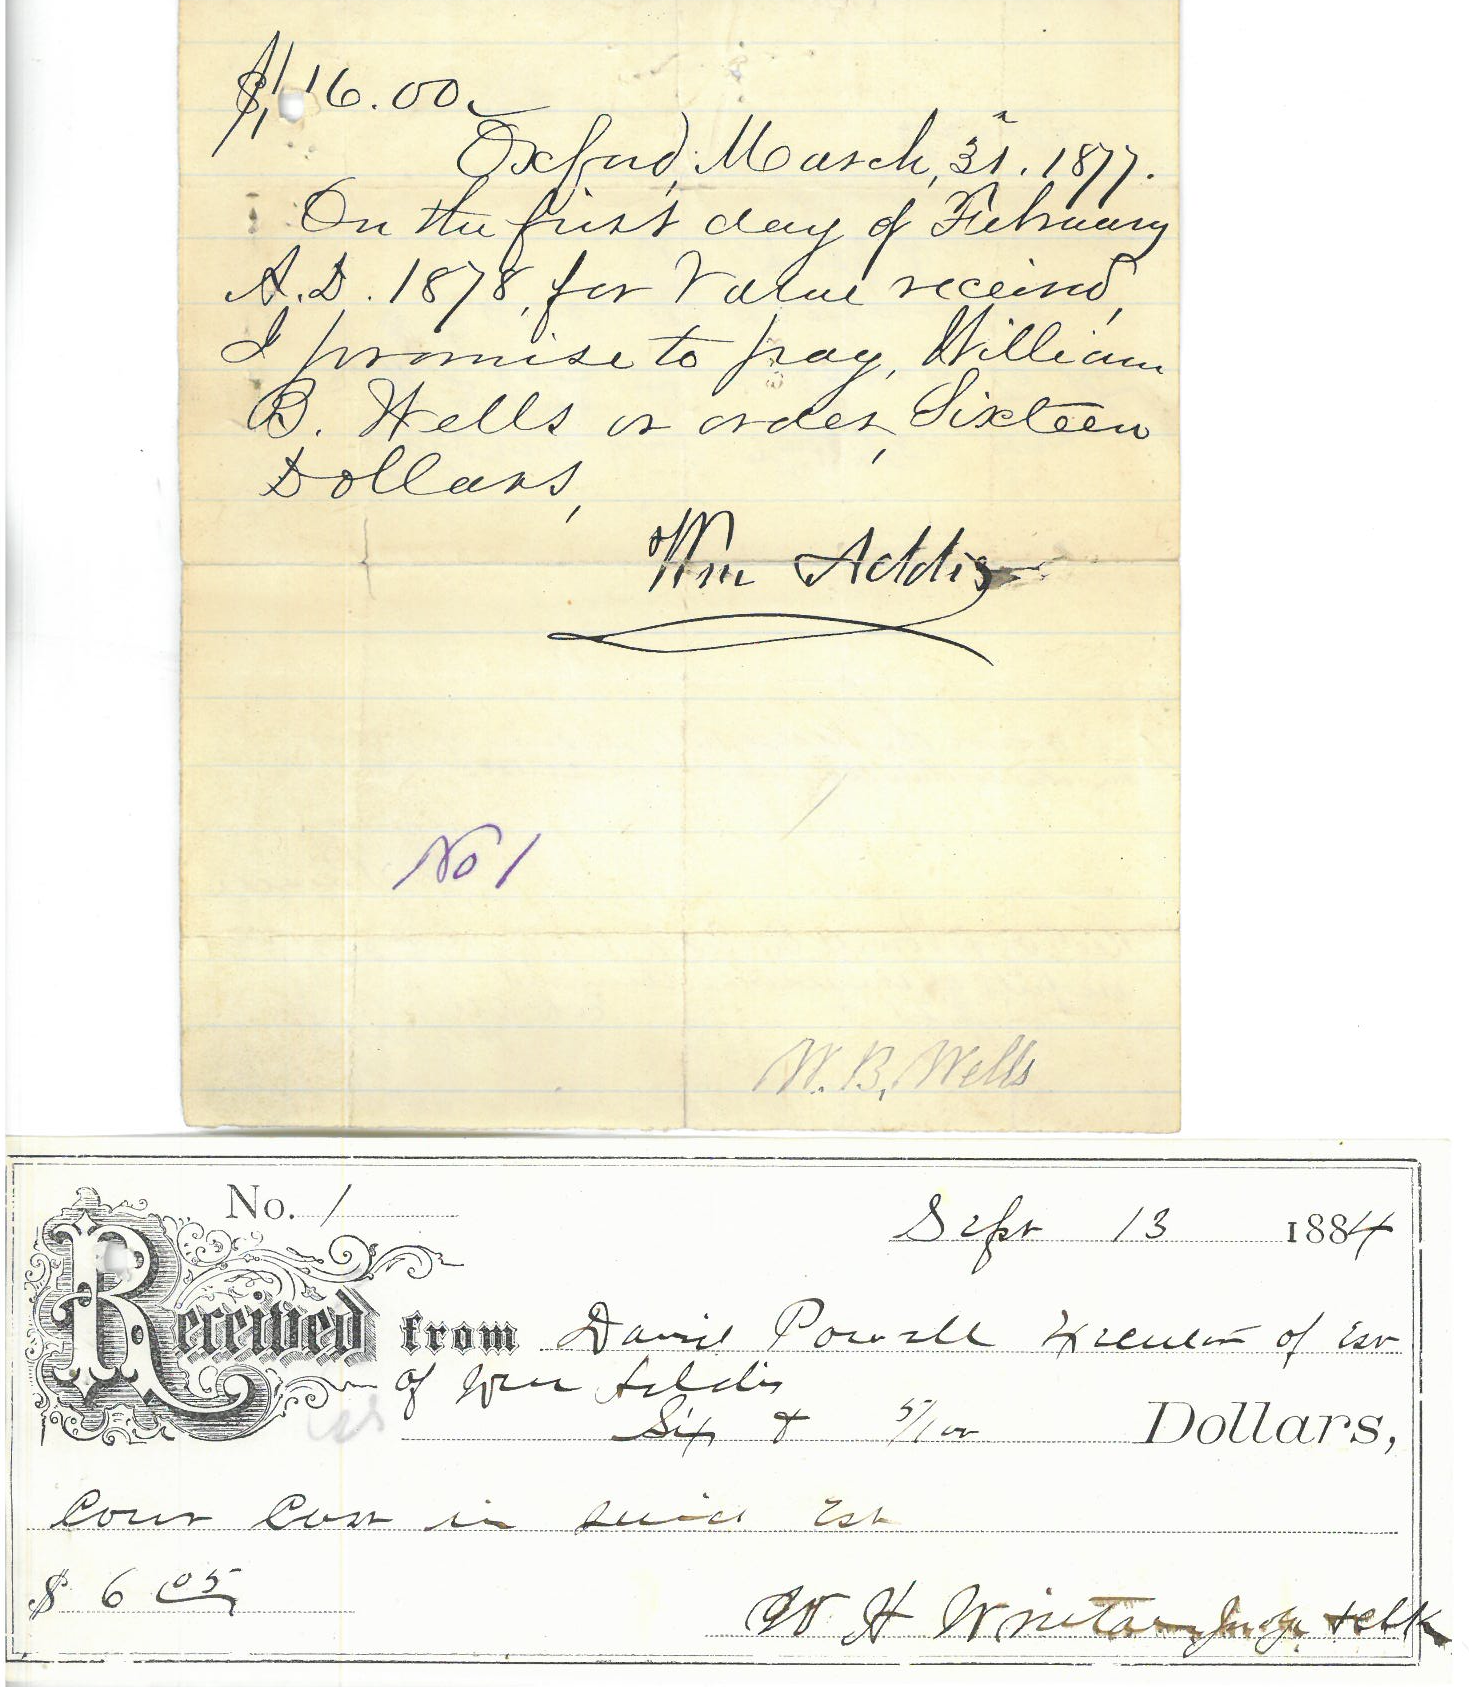 $16.00
Oxford, March, 31. 1877.
On the first day of February
A.D. 1878, for Value received,
I promise to pay, William
B. Wells or order, Sixteen
Dollars,
Wm Addis
No 1
W. B. Wells
No. 1
Sept 13 1884
Received from David Powell Executor of Est
of Wm Addis
Six & 5/100 Dollars,
Cour Cost in said Est
$ 6 05
W H Judge & Clk